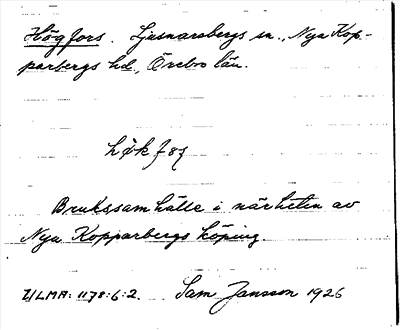 Högfors. Ljusnarsbergs sn., Nya Kop-
parbergs hd., Örebro län.
Brukssamhälle i närheten av
Nya Kopparbergs köping
ULMA: 1178:6:2. Sam Jansson 1926